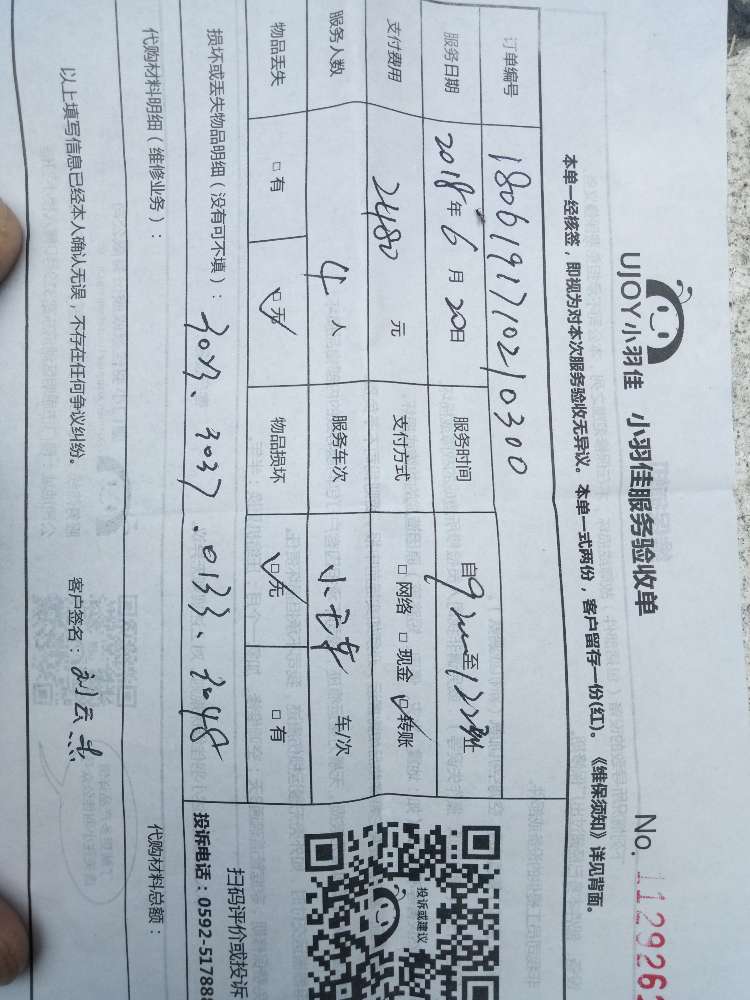 UJOY小羽佳 小羽佳服务验收单 No. 112926
本单一经核签，即视为对本次服务验收无异议。本单一式两份，客户留存一份(红)。《维保须知》详见背面。
订单编号 1806191710210300
服务日期 2018年6月20日 服务时间 自9 至12 止
支付费用 2480 元 支付方式 □网络 □现金 ☑转账
服务人数 4人 服务车次 车/次
物品丢失 □有 ☑无 物品损坏 ☑无 □有
损坏或丢失物品明细（没有可不填）： 3023、3037、0133、2048
代购材料明细（维修业务）： 代购材料总额：
以上填写信息已经本人确认无误，不存在任何争议纠纷。 客户签名：刘云
投诉或建议
扫码评价或投诉
投诉电话：0592-51788